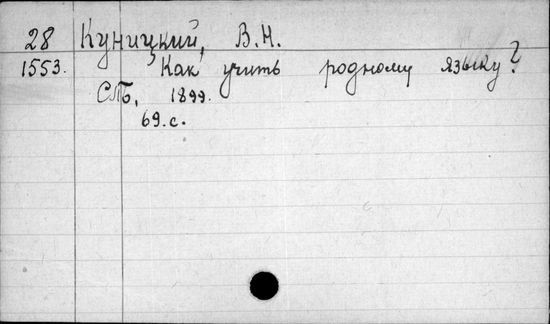 28 Куницкий, В.Н.
1553. Как учить родному языку?
СПб, 1899.
69.с.